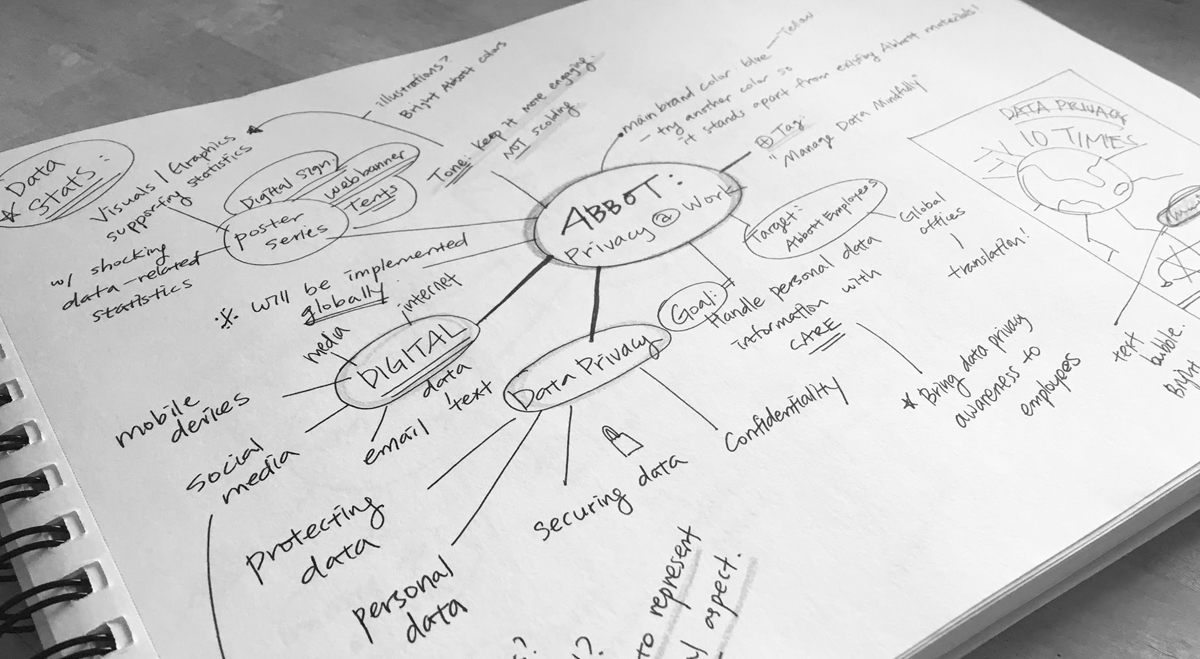 Data
Stats:
Visuals / Graphics
supporting
statistics
w/ shocking
data-related
statistics
Digital Sign.
Webbanner
Tents
poster
series
illustrations?
Bright Abbott colors
Tone: Keep it more engaging.
NOT scolding
main brand color blue — Yellow
- try another color so
it stands apart from existing Abbott materials!
Tag:
"Manage Data Mindfully"
ABBOT:
Privacy @ Work
Target:
Abbott Employees
Global
offices
translation!
Goal:
Handle personal data
information with
CARE
Bring data privacy
awareness to
employees
will be implemented
globally
DIGITAL
internet
media
mobile
devices
social
media
email
data
text
Data Privacy
protecting
data
personal
data
securing data
Confidentiality
DATA PRIVACY
10 TIMES
text
bubble.
Bright
to represent
aspect.